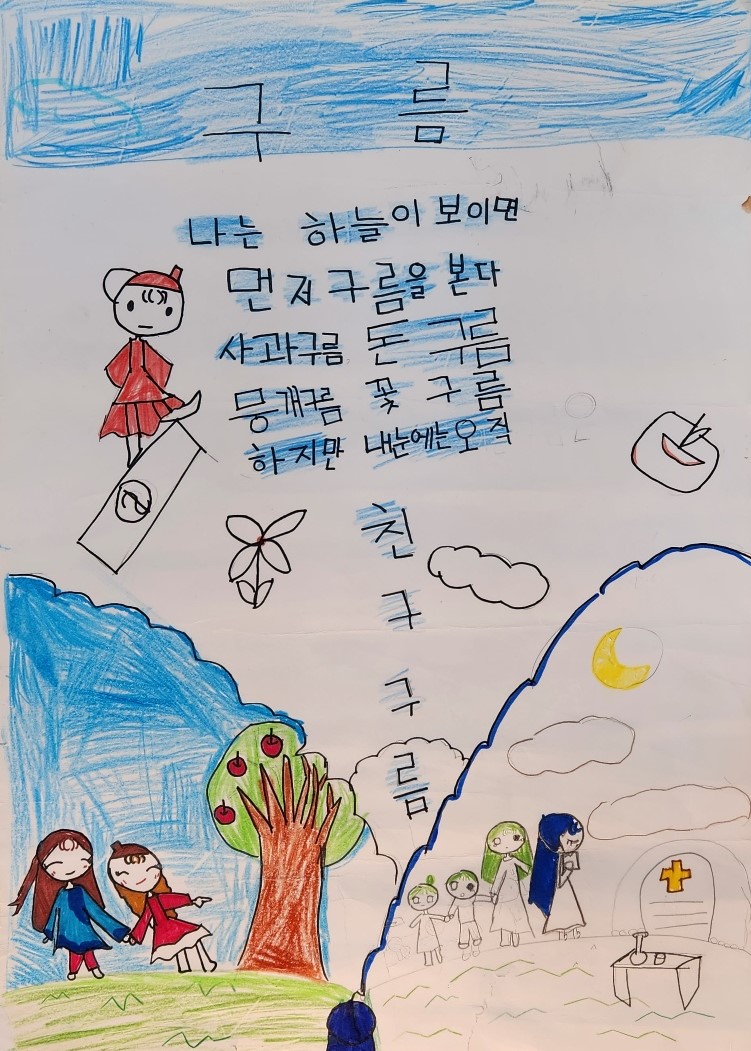 구름
나는 하늘이 보이면
먼저 구름을 본다
사과구름 돈 구름
뭉개구름 꽃 구름
하지만 내눈에는 오직
친
구
구
름